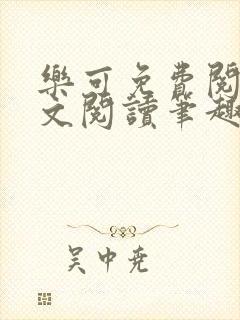 樂可免費閱
文閱讀筆趣
吴中尭